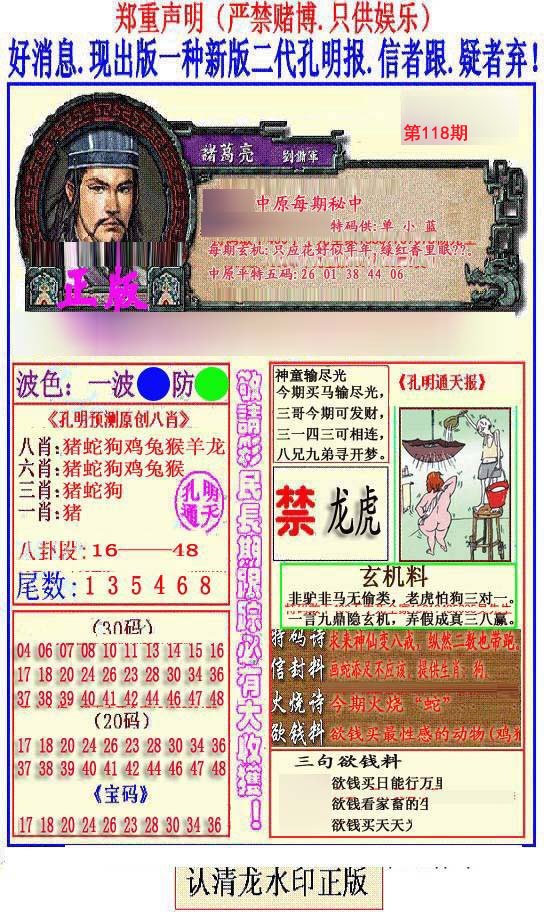 郑重声明（严禁赌博.只供娱乐）
好消息.现出版一种新版二代孔明报.信者跟.疑者弃！
第118期
諸葛亮 劉備軍
中原每期秘中
特码供:单 小 蓝
每期玄机:只应花好似年年 绿红香里眠??。
中原平特五码:26 01 38 44 06
正版
波色：一波 防
《孔明预测原创八肖》
八肖:猪蛇狗鸡兔猴羊龙
六肖:猪蛇狗鸡兔猴
三肖:猪蛇狗
一肖:猪
孔明
通天
八卦段:16——48
尾数:1 3 5 4 6 8
(30码)
04 06 07 08 10 11 13 14 15 16
17 18 20 24 26 23 28 30 34 36
37 38 39 40 41 42 45 46 47 48
(20码)
17 18 20 24 26 23 28 30 34 36
37 38 39 40 41 42 45 46 47 48
《宝码》
17 18 20 24 26 23 28 30 34 36
敬請彩民長期跟踪必有大收獲！
神童输尽光
今期买马输尽光，
三哥今期可发财，
三一四三可相连，
八兄九弟寻开梦。
《孔明通天报》
禁 龙虎
玄机料
非驴非马无偷类，老虎怕狗三对一。
一言九鼎隐玄机，弄假成真三八赢。
特码诗 求来神仙变八戒，纵然二数也带跑。
信封料 画蛇添足不应该，提供生肖：狗。
火烧诗 今期火烧“蛇”
欲钱料 欲钱买最性感的动物(鸡猪
三句欲钱料
欲钱买日能行万里
欲钱看家畜的
欲钱买天天
认清龙水印正版